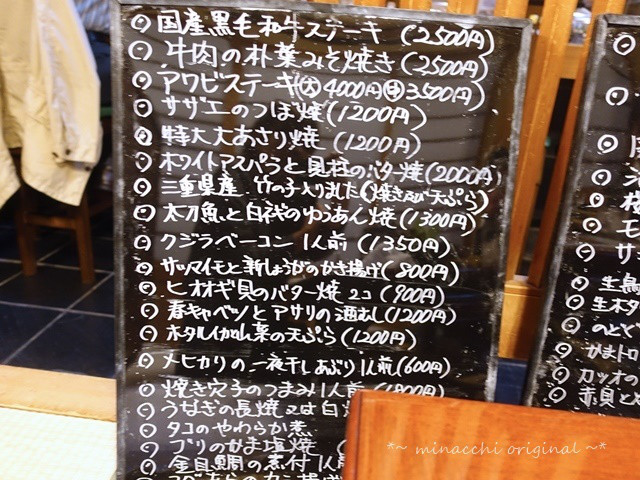 ◎国産黒毛和牛ステーキ (2500円)
◎牛肉の朴葉みそ焼き (2500円)
◎アワビステーキ㊅4000円㊥3500円)
◎サザエのつぼ焼 (1200円)
◎特大大あさり焼 (1200円)
◎ホワイトアスパラと貝柱のバター焼 (2000円)
◎三重県産 竹の子入りました(焼き又は天ぷら)
◎太刀魚と白ネギのゆうあん焼 (1300円)
◎クジラベーコン 1人前 (1350円)
◎サツマイモと新しょうがのかき揚げ (800円)
◎ヒオオギ貝のバター焼 2コ (900円)
◎春キャベツとアサリの酒むし (1200円)
◎ホタルイカと山菜の天ぷら (1200円)
◎メヒカリの一夜干しあぶり1人前 (600円)
◎焼き穴子のつまみ1人前
◎うなぎの長焼又は白
◎タコのやわらか煮
◎ブリのかま塩焼
◎金目鯛の煮付1人前
生鳥
生牡
のとと
かまトロ
カツオの
赤貝と
*~ minacchi original ~*